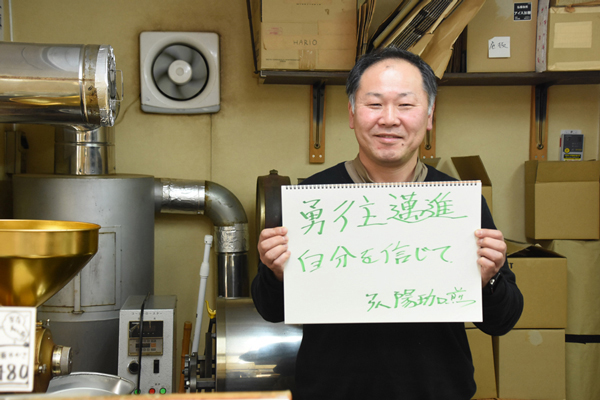 HARIO
勇往邁進
自分を信じて
弘陽珈煎
480